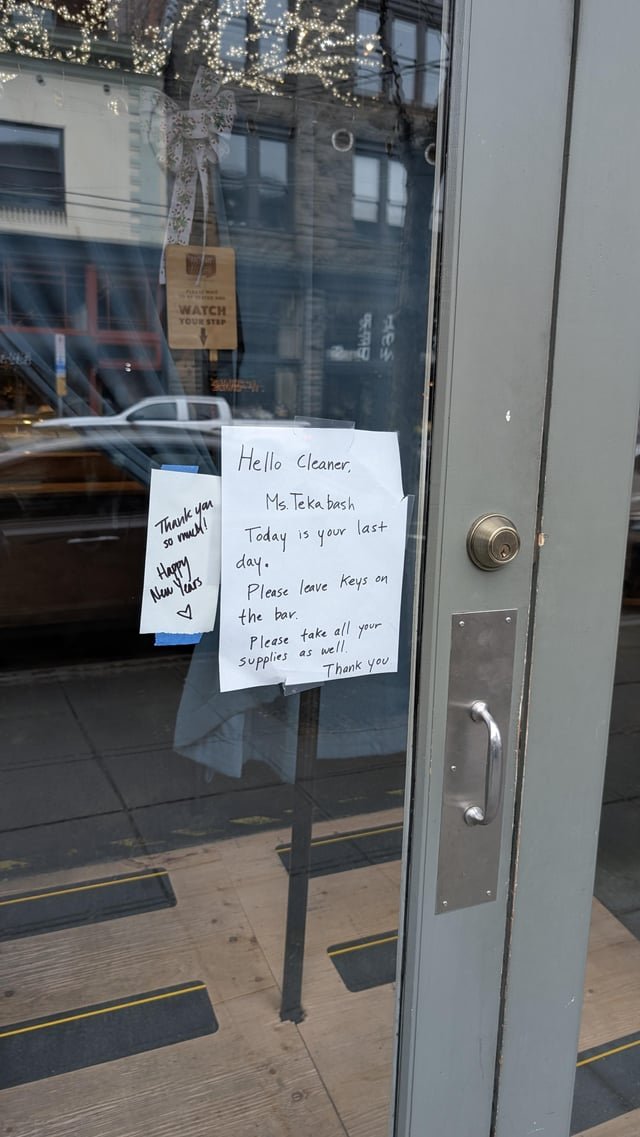 PLEASE WAIT
TO BE SEATED AND
WATCH
YOUR STEP
Hello Cleaner,
Ms. Tekabash
Today is your last
day.
Please leave keys on
the bar.
Please take all your
supplies as well.
Thank you
Thank you
so much!
Happy
New Years